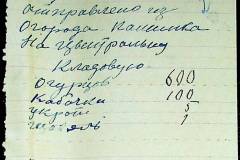 отправлено из
Огорода Калинка
На Центральну
Кладовую
Огурцов 600
Кабачки 100
укроп 5
щавель 1